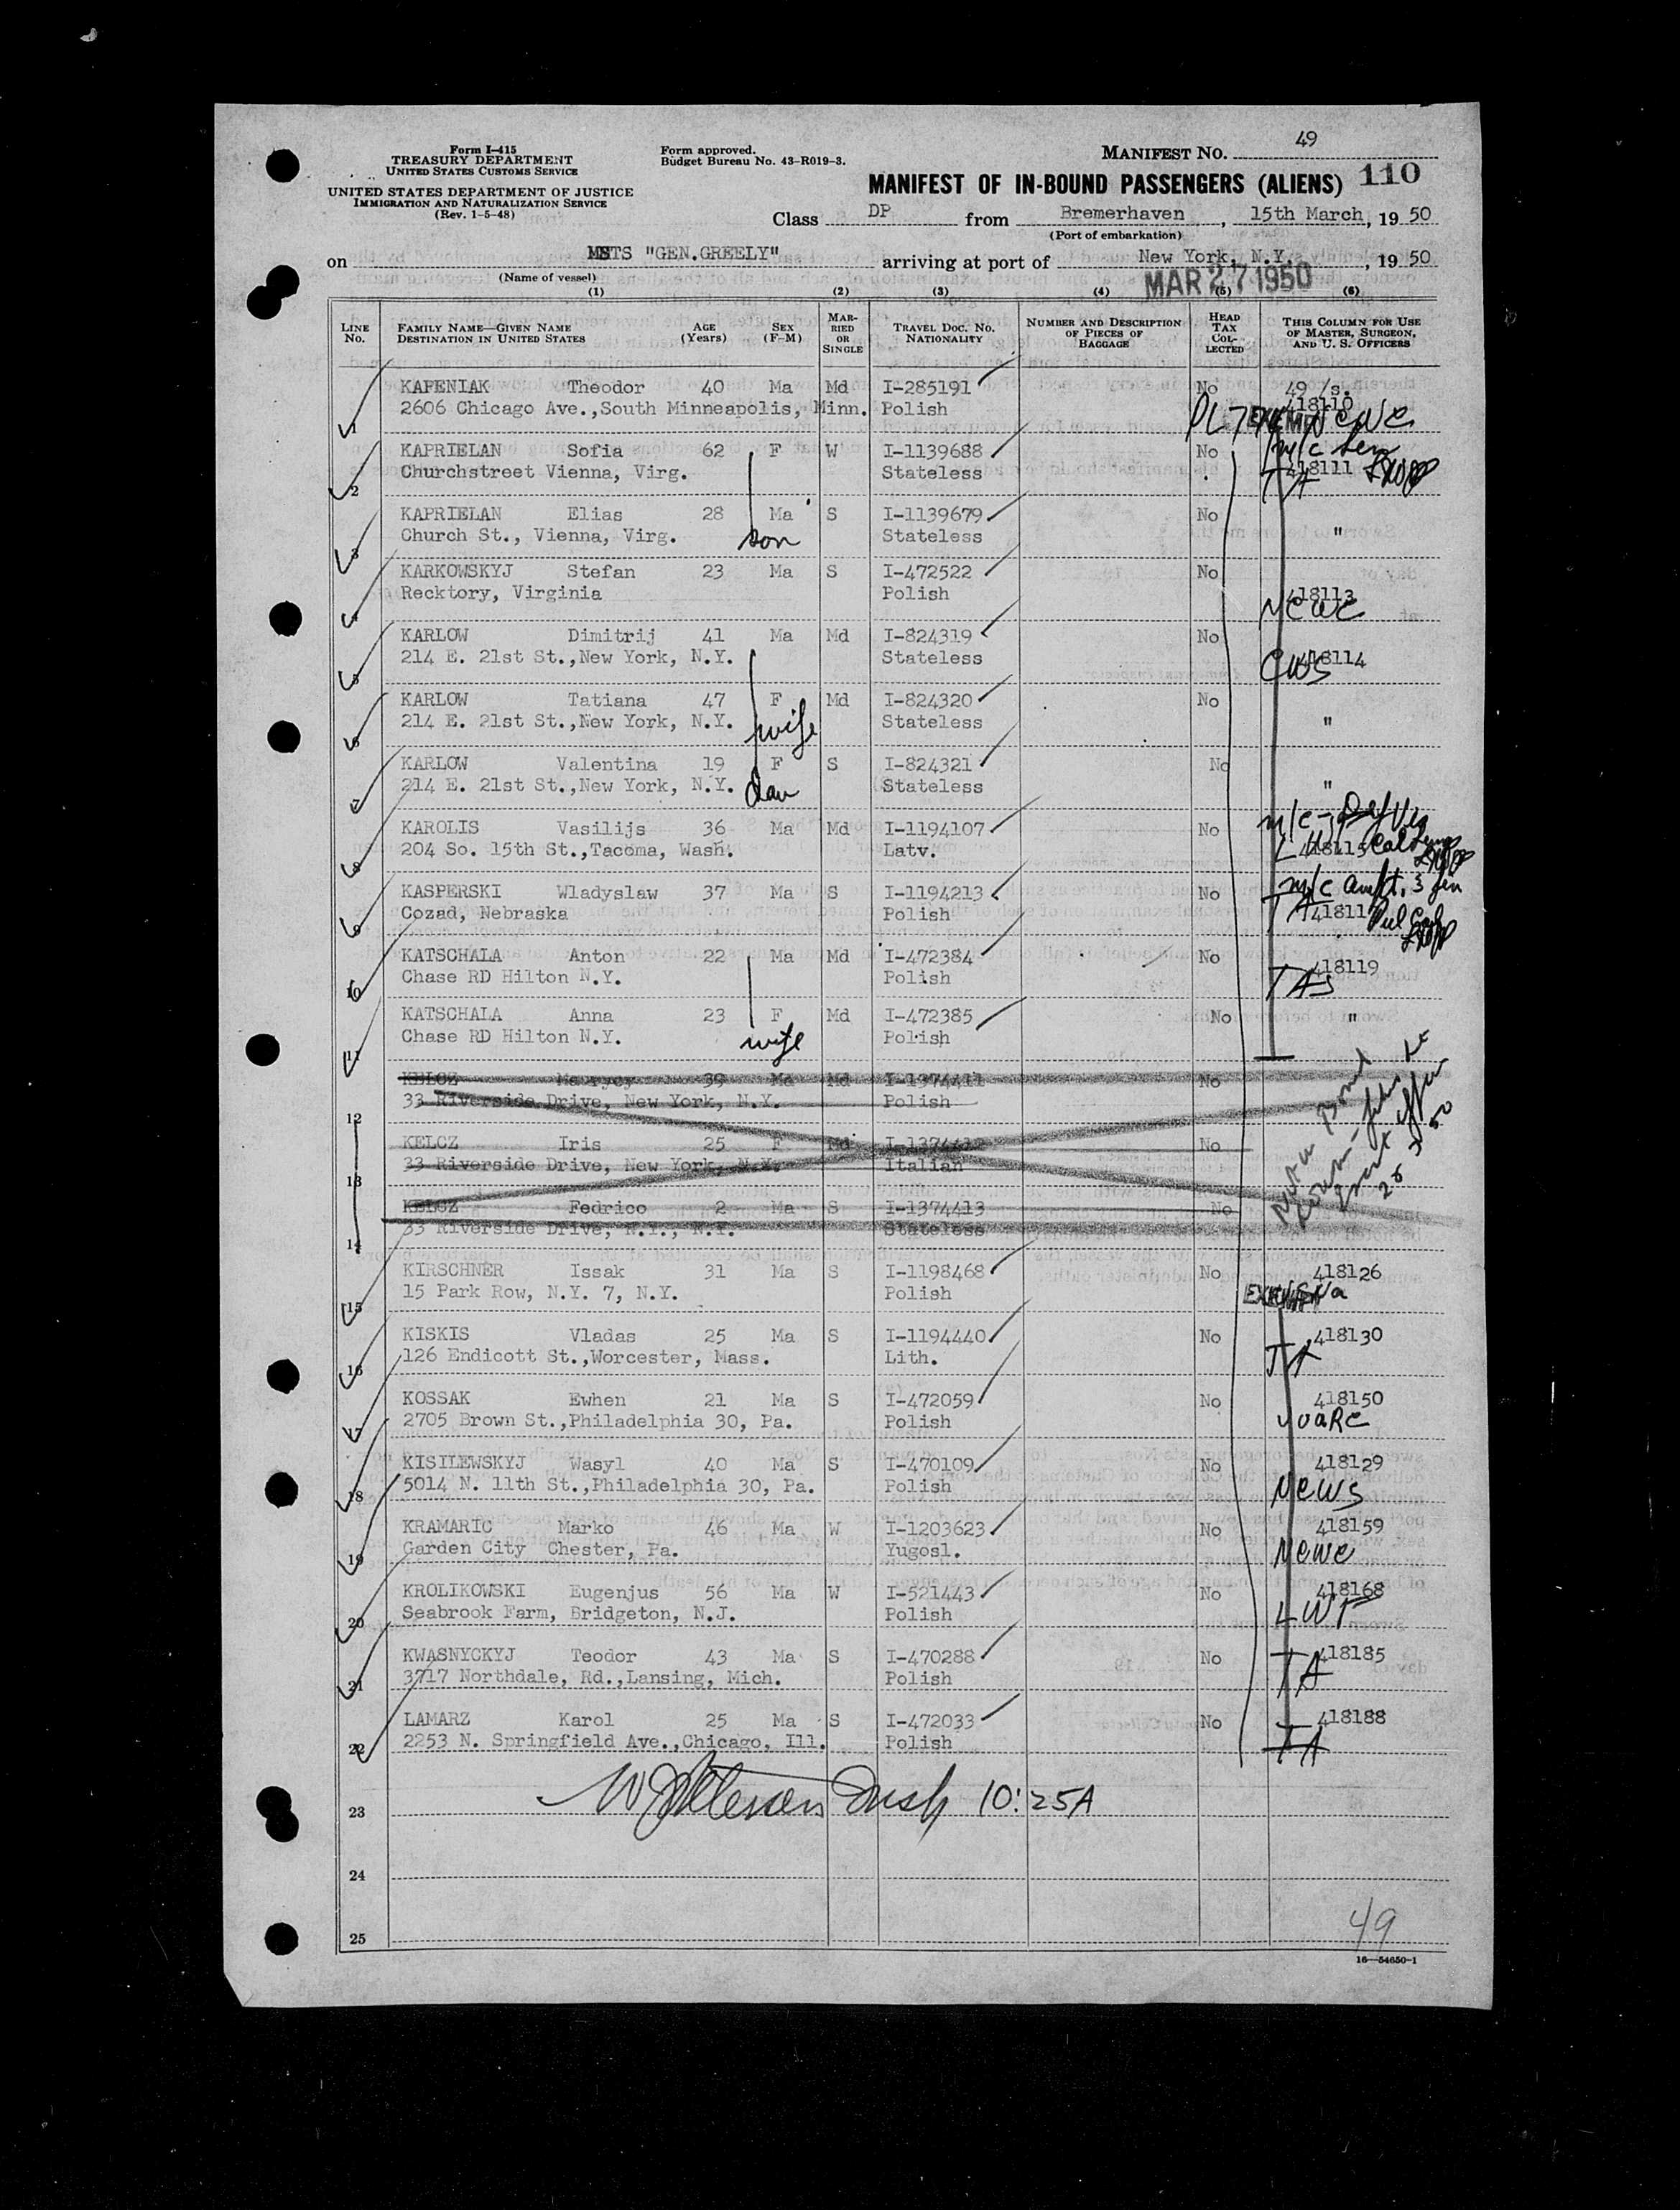 Form I-415
TREASURY DEPARTMENT
UNITED STATES CUSTOMS SERVICE
UNITED STATES DEPARTMENT OF JUSTICE
IMMIGRATION AND NATURALIZATION SERVICE
(Rev. 1-5-48)
Form approved.
Budget Bureau No. 43-R019-3.
MANIFEST NO. 49
MANIFEST OF IN-BOUND PASSENGERS (ALIENS) 110
Class DP from Bremerhaven, 15th March, 19 50
(Port of embarkation)
on MSTS "GEN.GREELY" arriving at port of New York, N.Y., 19 50
(Name of vessel)
MAR 27 1950
(1) (2) (3) (4) (5) (6)
LINE No. FAMILY NAME—GIVEN NAME DESTINATION IN UNITED STATES AGE (Years) SEX (F-M) MARRIED OR SINGLE TRAVEL DOC. NO. NATIONALITY NUMBER AND DESCRIPTION OF PIECES OF BAGGAGE HEAD TAX COLLECTED THIS COLUMN FOR USE OF MASTER, SURGEON, AND U. S. OFFICERS
KAPENIAK Theodor 40 Ma Md I-285191 No 49 /s.
418110
1 2606 Chicago Ave.,South Minneapolis, Minn. Polish NCWC
KAPRIELAN Sofia 62 F W I-1139688 No m/c Sen
2 Churchstreet Vienna, Virg. Stateless 418111
KAPRIELAN Elias 28 Ma S I-1139679 No
3 Church St., Vienna, Virg. son Stateless "
KARKOWSKYJ Stefan 23 Ma S I-472522 No
4 Recktory, Virginia Polish 418113
NCWC
KARLOW Dimitrij 41 Ma Md I-824319 No
5 214 E. 21st St.,New York, N.Y. Stateless 418114
CWS
KARLOW Tatiana 47 F Md I-824320 No
6 214 E. 21st St.,New York, N.Y. wife Stateless "
KARLOW Valentina 19 F S I-824321 No
7 214 E. 21st St.,New York, N.Y. dau Stateless "
KAROLIS Vasilijs 36 Ma Md I-1194107 No
8 204 So. 15th St.,Tacoma, Wash. Latv. 418115
KASPERSKI Wladyslaw 37 Ma S I-1194213 No
9 Cozad, Nebraska Polish 418117
KATSCHALA Anton 22 Ma Md I-472384 No
10 Chase RD Hilton N.Y. Polish 418119
TAS
KATSCHALA Anna 23 F Md I-472385 No "
11 Chase RD Hilton N.Y. wife Polish
KELCZ Mauryoy 39 Ma Md I-1374411 No
12 33 Riverside Drive, New York, N.Y. Polish
KELCZ Iris 25 F Md I-1374412 No
13 33 Riverside Drive, New York, N.Y. Italian
KELCZ Fedrico 2 Ma S I-1374413 No
14 33 Riverside Drive, N.Y., N.Y. Stateless
KIRSCHNER Issak 31 Ma S I-1198468 No 418126
15 15 Park Row, N.Y. 7, N.Y. Polish
KISKIS Vladas 25 Ma S I-1194440 No 418130
16 126 Endicott St.,Worcester, Mass. Lith.
KOSSAK Ewhen 21 Ma S I-472059 No 418150
17 2705 Brown St.,Philadelphia 30, Pa. Polish
KISILEWSKYJ Wasyl 40 Ma S I-470109 No 418129
18 5014 N. 11th St.,Philadelphia 30, Pa. Polish NCWS
KRAMARIC Marko 46 Ma W I-1203623 No 418159
19 Garden City Chester, Pa. Yugosl. NCWC
KROLIKOWSKI Eugenjus 56 Ma W I-521443 No 418168
20 Seabrook Farm, Bridgeton, N.J. Polish LWF
KWASNYCKYJ Teodor 43 Ma S I-470288 No 418185
21 3717 Northdale, Rd.,Lansing, Mich. Polish TA
LAMARZ Karol 25 Ma S I-472033 No 418188
22 2253 N. Springfield Ave.,Chicago, Ill. Polish TA
23 10:25A
24
25
49
16—54650-1